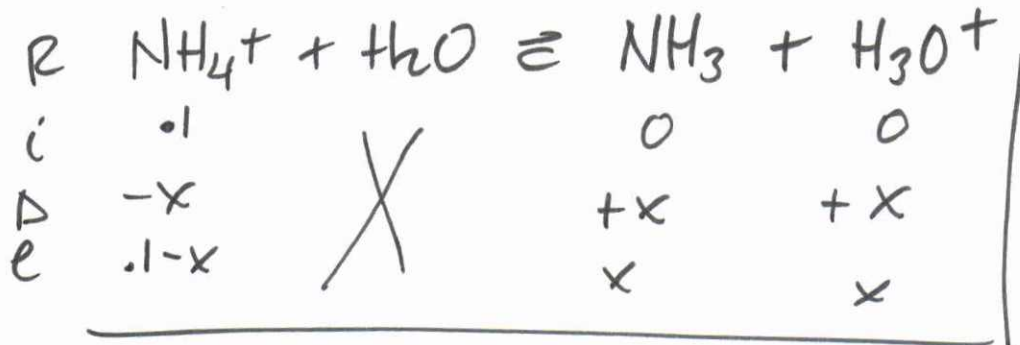 R NH₄⁺ + H₂O ⇌ NH₃ + H₃O⁺
i .1 0 0
Δ -x +x +x
e .1-x x x